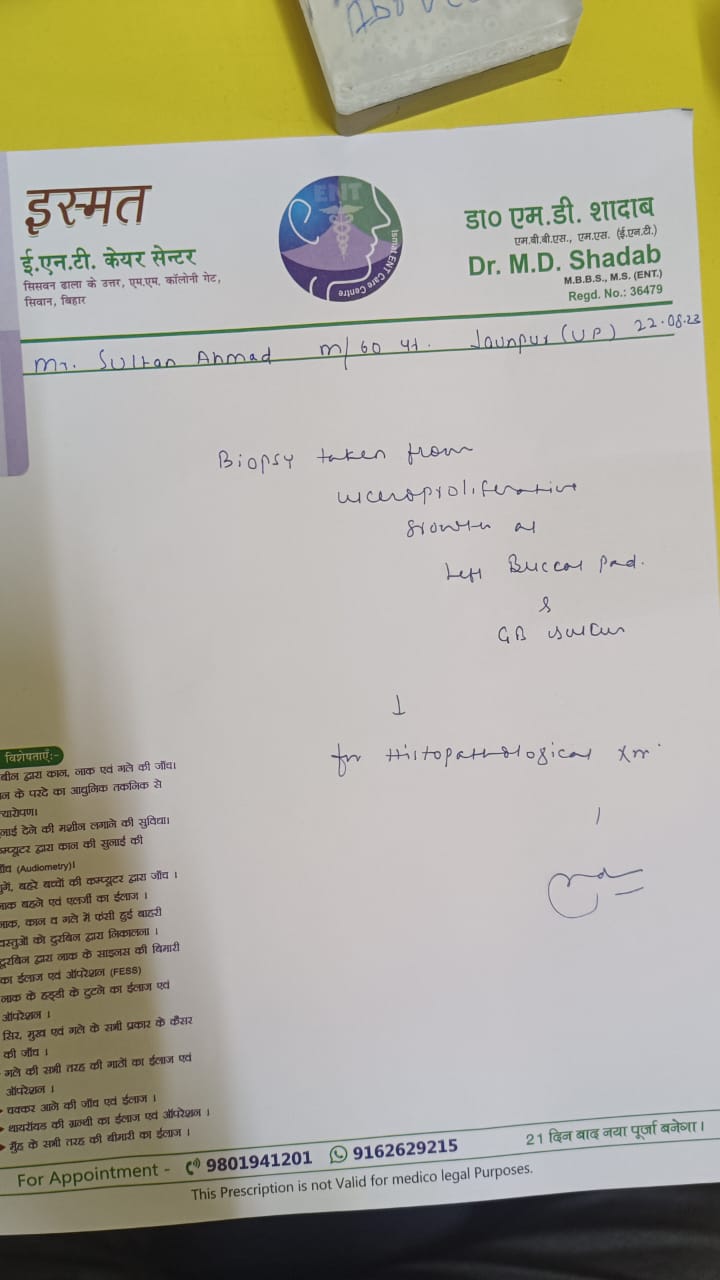 Above
इस्मत
ई.एन.टी. केयर सेन्टर
सिसवन ढाला के उत्तर, एम.एम. कॉलोनी गेट,
सिवान, बिहार
ENT
Ismat ENT Care Centre
डा० एम.डी. शादाब
एम.बी.बी.एस., एम.एस. (ई.एन.टी.)
Dr. M.D. Shadab
M.B.B.S., M.S. (ENT.)
Regd. No.: 36479
Mr. Sultan Ahmad M/60 yr. Jaunpur (UP) 22.08.23
Biopsy taken from
ulceroproliferative
growth at
Left Buccal Pad.
&
GB sulcus
↓
for Histopathological Xm.
विशेषताएँ:-
बीन द्वारा कान, नाक एवं गले की जाँच।
न के परदे का आधुनिक तकनिक से
यारोपण।
नाई देने की मशीन लगाने की सुविधा।
म्प्यूटर द्वारा कान की सुनाई की
ाँच (Audiometry)।
ूगें, बहरे बच्चों की कम्प्यूटर द्वारा जाँच ।
नाक बहने एवं एलर्जी का ईलाज ।
नाक, कान व गले में फंसी हुई बाहरी
वस्तुओं को दुरबिन द्वारा निकालना ।
दूरबिन द्वारा नाक के साइनस की बिमारी
का ईलाज एवं ऑपरेशन (FESS)
नाक के हड्डी के टुटने का ईलाज एवं
ऑपरेशन ।
सिर, मुख एवं गले के सभी प्रकार के कैंसर
की जाँच ।
गले की सभी तरह की गाठों का ईलाज एवं
ऑपरेशन ।
चक्कर आने की जाँच एवं ईलाज ।
थायरॉयड की ग्रन्थी का ईलाज एवं ऑपरेशन ।
मुँह के सभी तरह की बीमारी का ईलाज ।
For Appointment - 9801941201 9162629215 21 दिन बाद नया पूर्जा बनेगा।
This Prescription is not Valid for medico legal Purposes.